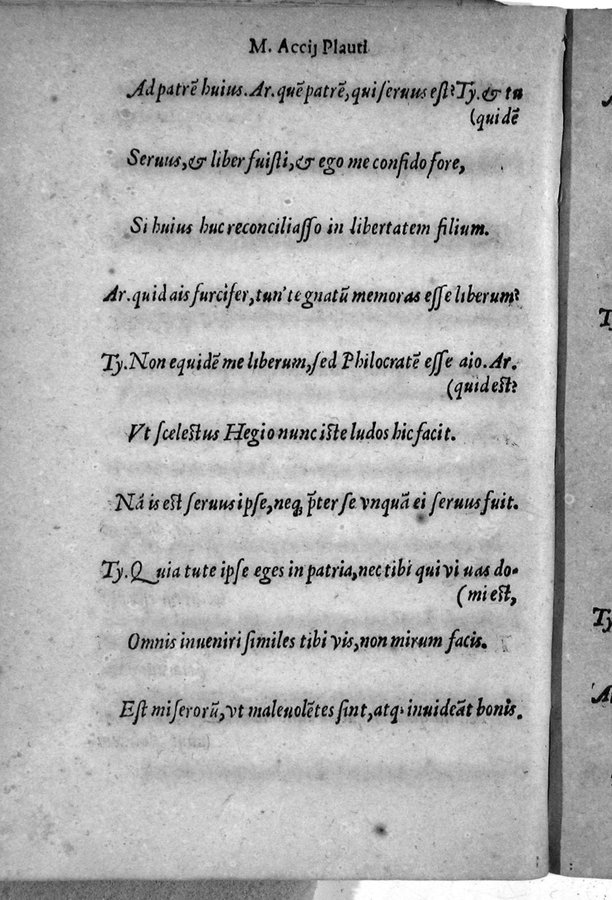 M. Accij Plauti
Ad patrẽ huius. Ar. quẽ patrẽ, qui ſeruus eſt? Ty. & tu
(quidẽ
Seruus, & liber fuiſti, & ego me confido fore,
Si huius huc reconciliaſſo in libertatem filium.
Ar. quid ais furcifer, tun' te gnatũ memoras eſſe liberum?
Ty. Non equidẽ me liberum, ſed Philocratẽ eſſe aio. Ar.
(quid eſt?
Vt ſceleſtus Hegio nunc iſte ludos hic facit.
Nã is eſt ſeruus ipſe, neqꝫ p̃ter ſe vnquã ei ſeruus fuit.
Ty. Quia tute ipſe eges in patria, nec tibi qui vi uas do-
(mi eſt,
Omnis inueniri ſimiles tibi vis, non mirum facis.
Eſt miſerorũ, vt maleuolẽtes ſint, atqꝫ inuideãt bonis.